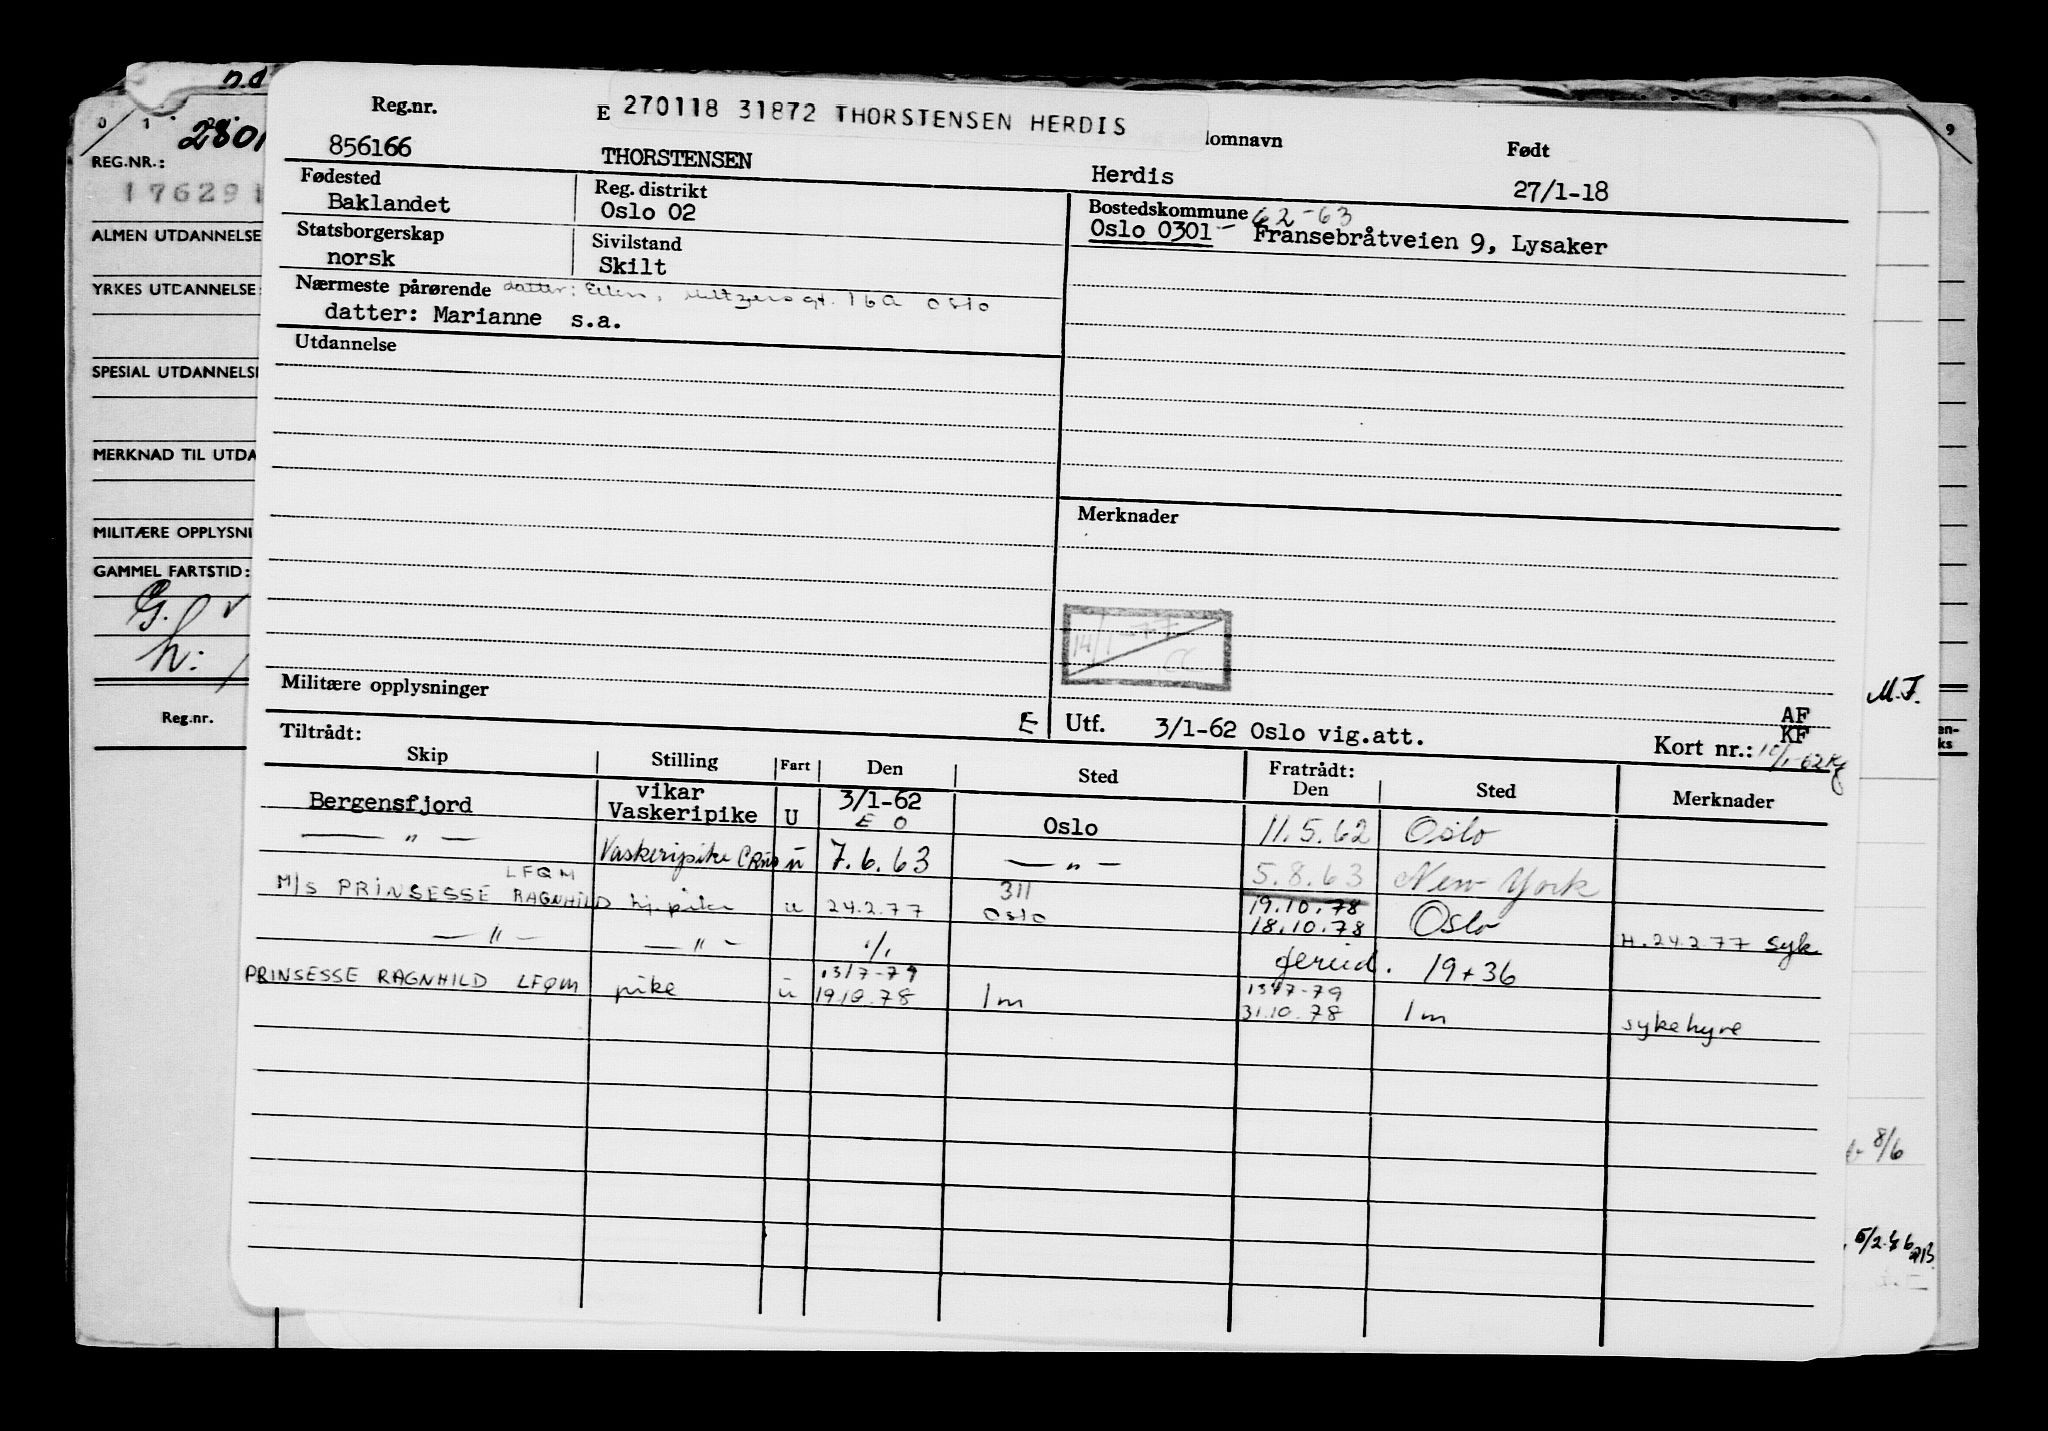 n.d
0 1 2
2801
REG.NR.:
176291
ALMEN UTDANNELSE
YRKES UTDANNELSE:
SPESIAL UTDANNELSE
MERKNAD TIL UTDA
MILITÆRE OPPLYSNI
GAMMEL FARTSTID:
G. v
h:
Reg.nr.
Reg.nr. E 270118 31872 THORSTENSEN HERDIS lomnavn Født
856166 THORSTENSEN Herdis 27/1-18
Fødested Reg. distrikt Bostedskommune 62-63
Baklandet Oslo 02 Oslo 0301 - Fransebråtveien 9, Lysaker
Statsborgerskap Sivilstand
norsk Skilt
Nærmeste pårørende datter: Ellen, Meltzersgt. 16A Oslo
datter: Marianne s.a.
Utdannelse
Merknader
14/1-77
Militære opplysninger
E Utf. 3/1-62 Oslo vig.att. AF
KF
Kort nr.:
Tiltrådt: Fratrådt:
Skip Stilling Fart Den Sted Den Sted Merknader
Bergensfjord vikar Vaskeripike U 3/1-62 Oslo 11.5.62 Oslo
E O
— " — Vaskeripike u 7.6.63 — " — 5.8.63 New York
M/S PRINSESSE RAGNHILD LFQM hj.pike u 24.2.77 311 Oslo 19.10.78 18.10.78 Oslo H. 24.2.77 syk
— " — — " — 1/1 19+36
PRINSESSE RAGNHILD LFQM pike u 13/7-79 19.10.78 1m 13/7-79 31.10.78 1m sykehyre
9
M.F.
en-
ks
8/6